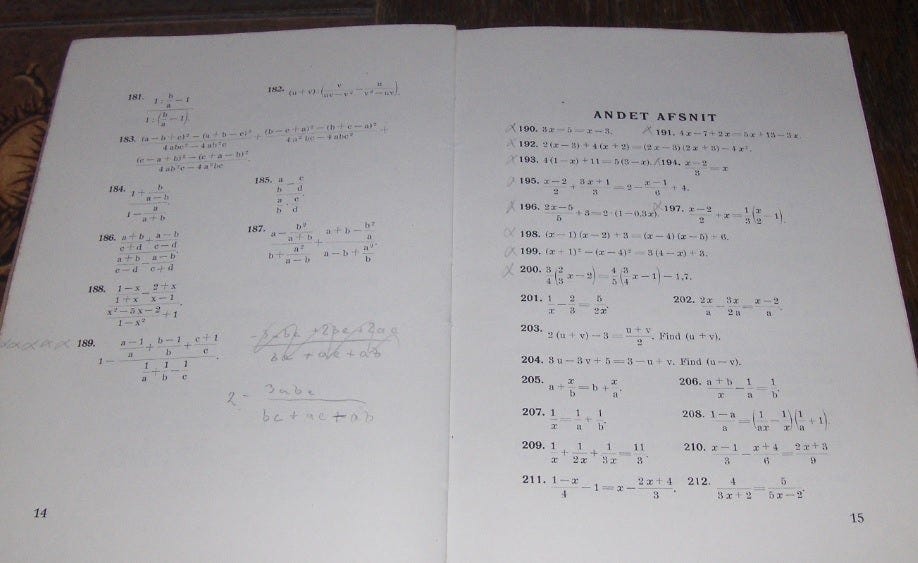 181. (1 : b/a - 1) / (1 : (b/a - 1)). 182. (u + v) : (v/(uv - v²) - u/(v² - uv)).
183. ((a - b + c)² - (a + b - c)²)/(4 abc² - 4 ab²c) + ((b - c + a)² - (b + c - a)²)/(4 a²bc - 4 abc²) +
((c - a + b)² - (c + a - b)²)/(4 ab²c - 4 a²bc).
184. (1 + b/(a - b)) / (1 - a/(a + b)). 185. (a/b - c/d) / (a/b · c/d).
186. ((a + b)/(c + d) + (a - b)/(c - d)) / ((a + b)/(c - d) - (a - b)/(c + d)). 187. (a - b²/(a + b)) / (b + a²/(a - b)) + (a + b - b²/a) / (a - b + a²/b).
188. ((1 - x)/(1 + x) - (2 + x)/(x - 1)) / ((x² - 5x - 2)/(1 - x²) + 1)
189. 1 - ((a - 1)/a + (b - 1)/b + (c + 1)/c) / (1/a + 1/b - 1/c)
bc + ac + ab
2 - 3abc
bc + ac + ab
14
ANDET AFSNIT
190. 3x - 5 = x - 3. 191. 4x - 7 + 2x = 5x + 13 - 3x.
192. 2(x - 3) + 4(x + 2) = (2x - 3)(2x + 3) - 4x².
193. 4(1 - x) + 11 = 5(3 - x). 194. (x - 2)/3 = x
195. (x - 2)/2 + (3x + 1)/3 = 2 - (x - 1)/6 + 4.
196. (2x - 5)/5 + 3 = 2 · (1 - 0,3x). 197. (x - 2)/2 + x = 1/3 (x/2 - 1).
198. (x - 1)(x - 2) + 3 = (x - 4)(x - 5) + 6.
199. (x + 1)² - (x - 4)² = 3(4 - x) + 3.
200. 3/4 (2/3 x - 2) = 4/5 (3/4 x - 1) - 1,7.
201. 1/x - 2/3 = 5/2x. 202. 2x/a - 3x/2a = (x - 2)/a.
203. 2(u + v) - 3 = (u + v)/2. Find (u + v).
204. 3u - 3v + 5 = 3 - u + v. Find (u - v).
205. a + x/b = b + x/a. 206. (a + b)/x - 1/a = 1/b.
207. 1/x = 1/a + 1/b. 208. (1 - a)/a = (1/ax - 1/x)(1/a + 1).
209. 1/x + 1/2x + 1/3x = 11/3. 210. (x - 1)/3 - (x + 4)/6 = (2x + 3)/9.
211. (1 - x)/4 - 1 = x - (2x + 4)/3. 212. 4/(3x + 2) = 5/(5x - 2).
15